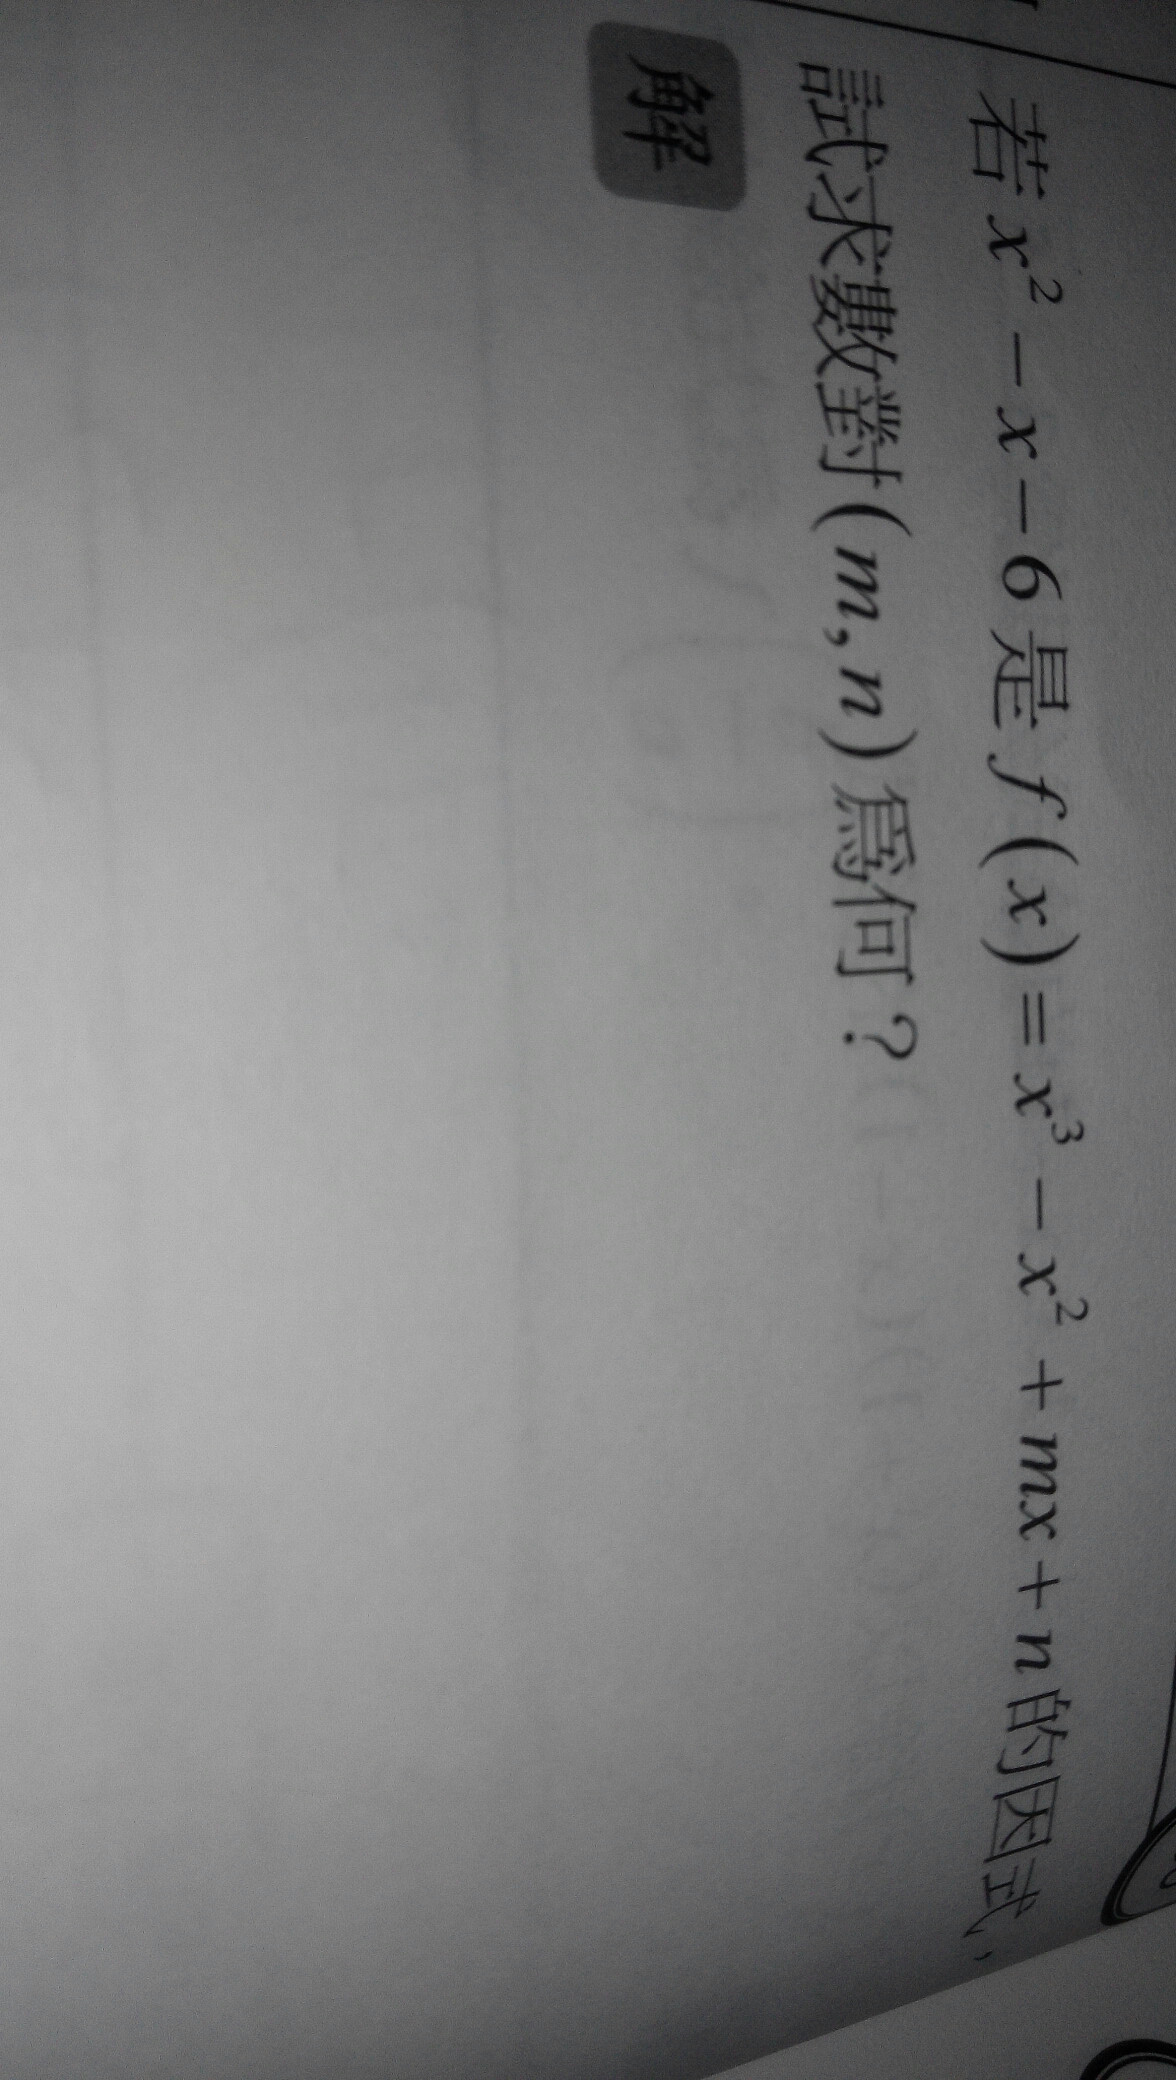 若 x² - x - 6 是 f(x) = x³ - x² + mx + n 的因式,
試求數對(m, n)爲何?
解